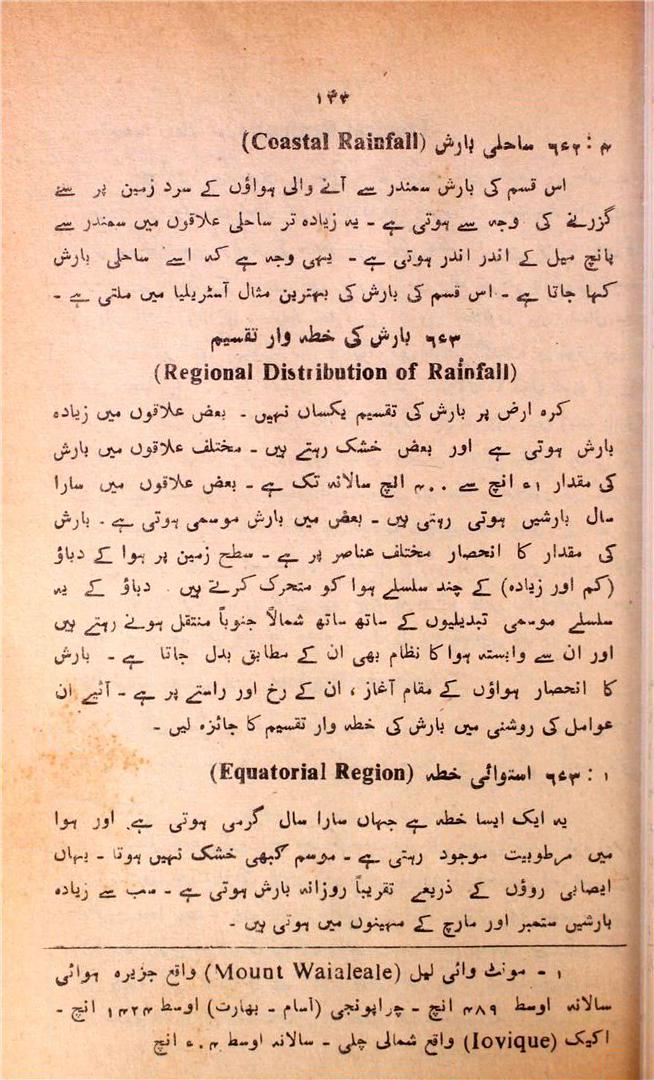 ۱۴۳
۶ء۶۲ : ۴ ساحلی بارش (Coastal Rainfall)
اس قسم کی بارش سمندر سے آنے والی ہواؤں کے سرد زمین پر سے
گزرنے کی وجہ سے ہوتی ہے ۔ یہ زیادہ تر ساحلی علاقوں میں سمندر سے
پانچ میل کے اندر اندر ہوتی ہے ۔ یہی وجہ ہے کہ اسے ساحلی بارش
کہا جاتا ہے ۔ اس قسم کی بارش کی بہترین مثال آسٹریلیا میں ملتی ہے ۔
۶ء۶۳ بارش کی خطہ وار تقسیم
(Regional Distribution of Rainfall)
کرہ ارض پر بارش کی تقسیم یکساں نہیں ۔ بعض علاقوں میں زیادہ
بارش ہوتی ہے اور بعض خشک رہتے ہیں ۔ مختلف علاقوں میں بارش
کی مقدار ۱ء انچ سے ۴۰۰ انچ سالانہ تک ہے ۔ بعض علاقوں میں سارا
سال بارشیں ہوتی رہتی ہیں ۔ بعض میں بارش موسمی ہوتی ہے ۔ بارش
کی مقدار کا انحصار مختلف عناصر پر ہے ۔ سطح زمین پر ہوا کے دباؤ
(کم اور زیادہ) کے چند سلسلے ہوا کو متحرک کرتے ہیں ۔ دباؤ کے یہ
سلسلے موسمی تبدیلیوں کے ساتھ ساتھ شمالاً جنوباً منتقل ہوتے رہتے ہیں
اور ان سے وابستہ ہوا کا نظام بھی ان کے مطابق بدل جاتا ہے ۔ بارش
کا انحصار ہواؤں کے مقام آغاز ، ان کے رخ اور راستے پر ہے ۔ آئیے ان
عوامل کی روشنی میں بارش کی خطہ وار تقسیم کا جائزہ لیں ۔
۶ء۶۳ : ۱ استوائی خطہ (Equatorial Region)
یہ ایک ایسا خطہ ہے جہاں سارا سال گرمی ہوتی ہے اور ہوا
میں مرطوبیت موجود رہتی ہے ۔ موسم کبھی خشک نہیں ہوتا ۔ یہاں
ایصالی روؤں کے ذریعے تقریباً روزانہ بارش ہوتی ہے ۔ سب سے زیادہ
بارشیں ستمبر اور مارچ کے مہینوں میں ہوتی ہیں ۔
۱ ۔ مونٹ وائی لیل (Mount Waialeale) واقع جزیرہ ہوائی
سالانہ اوسط ۴۸۹ انچ ۔ چراپونجی (آسام ۔ بھارت) اوسط ۱۴۲۴ انچ ۔
اکیک (Iovique) واقع شمالی چلی ۔ سالانہ اوسط ۰۴ء انچ